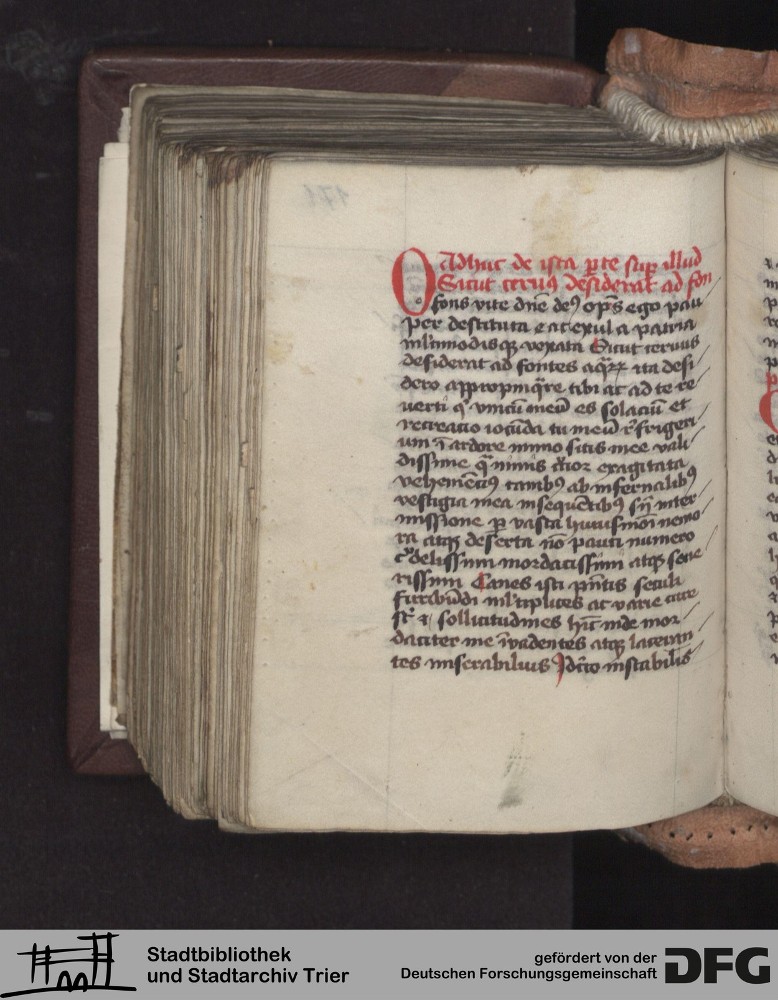 Adhuc de ista pte sup illud
Sicut cervus desiderat ad fon
O fons vite dne deus ops ego pau
per destituta e at exul a patria
ml'timodisq vexata Sicut cervus
desiderat ad fontes aqrz ita desi
dero appropinqre tibi ac ad te re
verti q' unicu meu es solaciu et
recreatio iocuda tu meu refrigeri
um i ardore nimio sitis mee vali
dissime nimis exagitata
vehementius canibus ab infernalibus
vestigia mea insequetibus sn inter
missione p vasta huiusmoi nemo
ra atq deserta no pauci numero
crudelissimi mordacissimi atq seve
rissimi Canes isti pntis seculi
furibudi ml'tiplices ac varie cure
st et sollicitudines hic inde mor
daciter me ivadentes atq laceran
tes miserabilius Idcirco instabilis
Stadtbibliothek
und Stadtarchiv Trier
gefördert von der
Deutschen Forschungsgemeinschaft
DFG